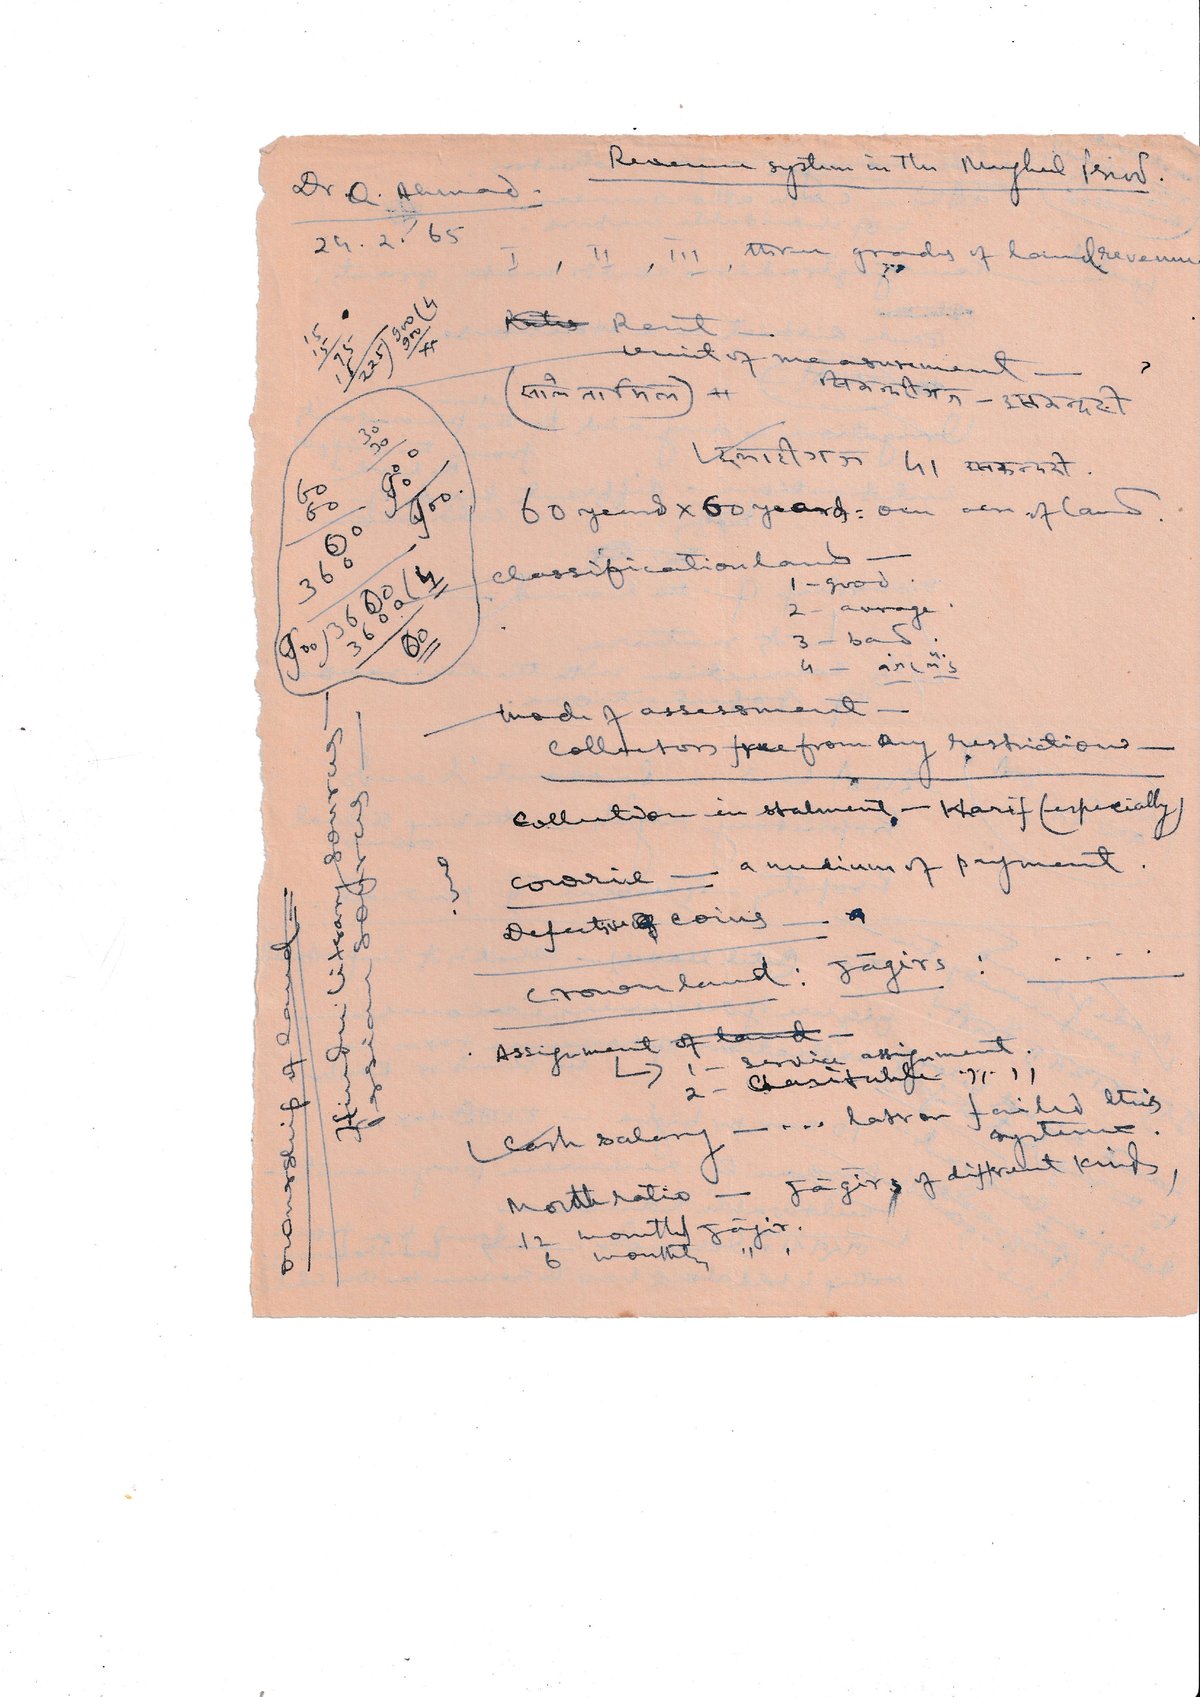 Revenue system in the Mughal Period.
Dr Q. Ahmad.
24. 2. 65
I , II , III , three grades of land revenue
Rent —
Unit of measurement —
60 yards x 60 yards = one acre of land.
classification land —
1 - good.
2 - average.
3 - bad.
4 -
Mode of assessment —
Collectors free from any restrictions —
Collection in stalment — Kharif (especially)
Cowrie — a medium of payment.
Defective coins —
Crown land : Jāgirs : . . . . .
Assignment of land —
1 - service assignment.
2 - Charitable " "
Cash salary — ... later on failed this
system.
Month ratio — Jāgirs of different kinds,
12 monthly Jāgir.
6 monthly " "
15
15
75
15
225) 900 (4
900
30
30
00
90
900
60
60
00
360
3600
900) 3600 (4
3600
60
ownership of land
Hindi literary sources —
Persian sources —